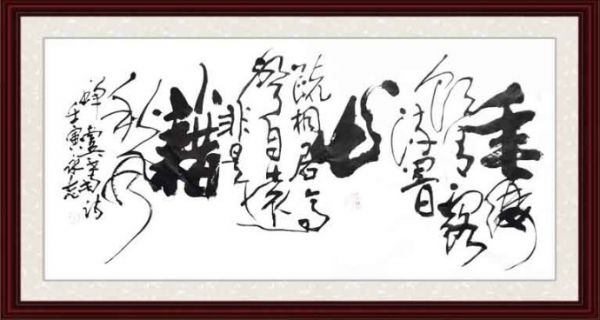 垂緌
飲清露
流響
出
疏桐居高
聲自遠
非是
藉
秋风
蟬 虞世南诗
壬寅